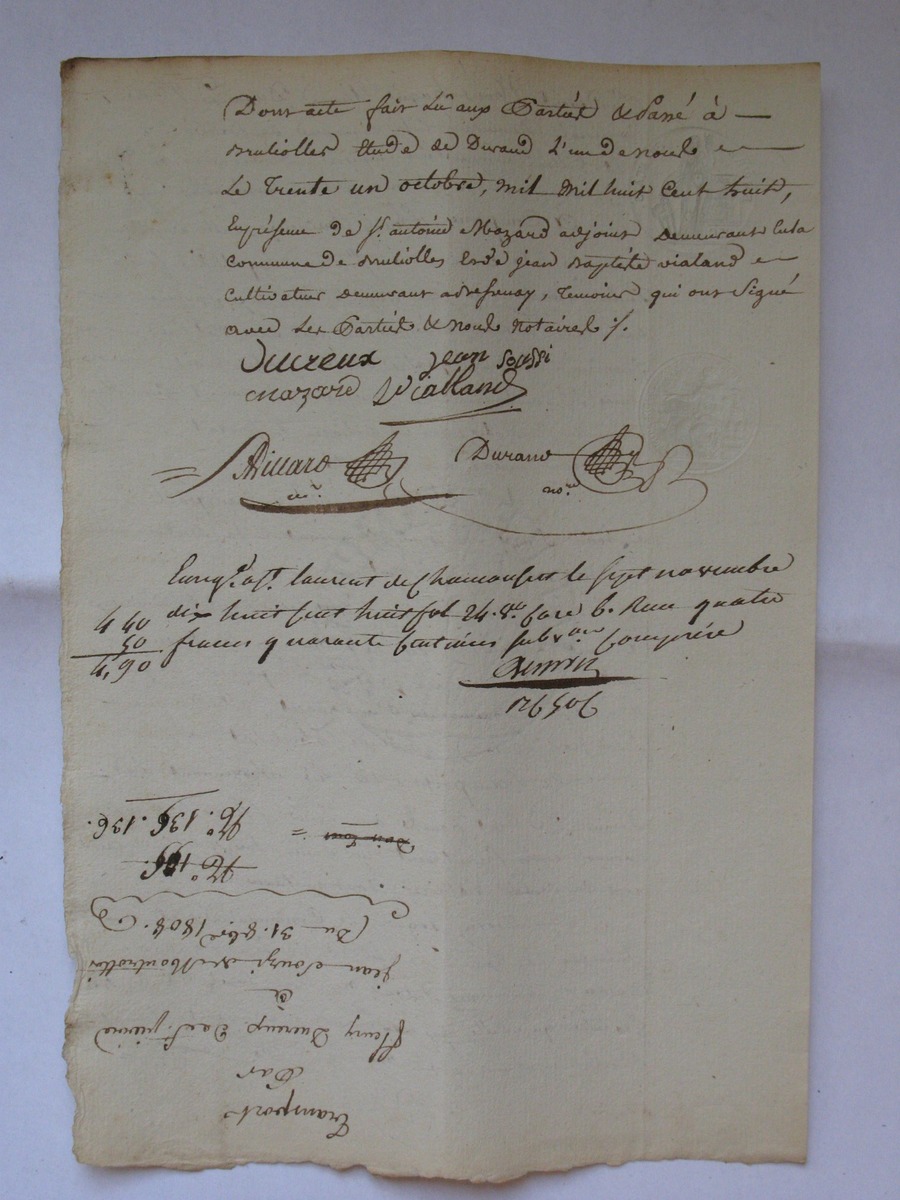 Dont acte fait Lû aux Parties & Passé à
Brullioles Etude de Durand L'un de nous
Le Trente un octobre, mil mil huit Cent huit,
En présence de Sr. antoine Mazard adjoint Demeurant En la
Commune de Brullioles Et de jean Baptiste vialand
Cultivateur Demeurant a Bessenay, Temoins qui ont Signé
avec Les Parties & nous notaires ./.
Ducreux jean Soussi
Mazard Vialland
Durand
no.re
Enreg.é à St. laurent de Chamousset le sept novembre
dix huit cent huit fol 24. v.o Case 6. Reçu quatre
francs quarante Centimes subv.on Comprise
4 40
50
4,90
Transport
Par
fleury Ducreux De
à
jean Souzi de Montrottier
Du 31. 8bre 1808.
N.o 136. 136.